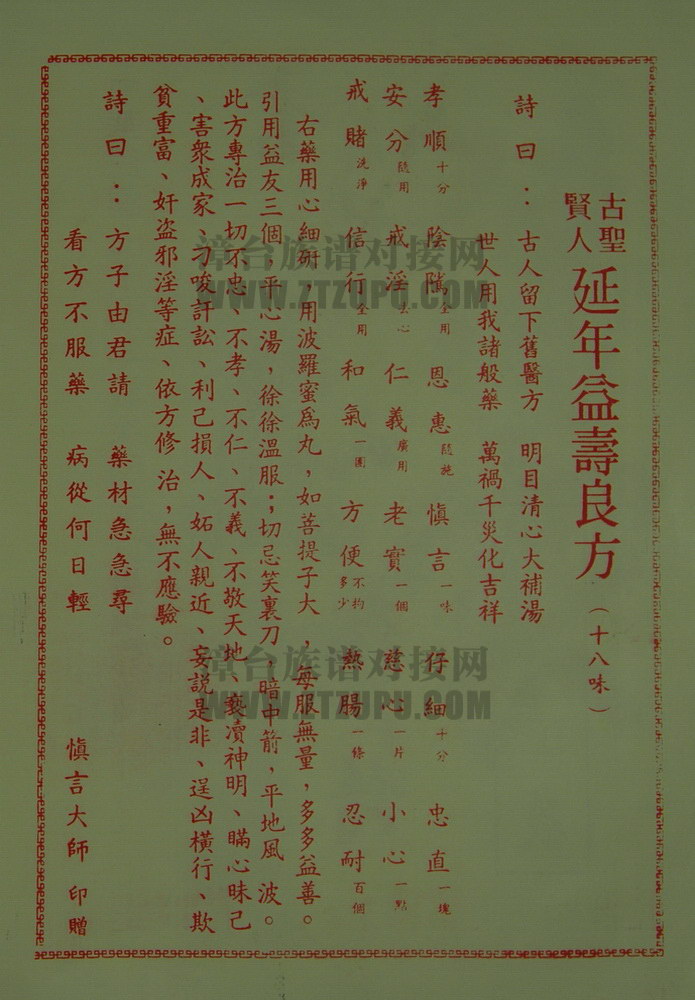 古聖賢人 延年益壽良方（十八味）
詩曰：古人留下舊醫方 明目清心大補湯
世人用我諸般藥 萬禍千災化吉祥
孝順十分 陰隲全用 恩惠隨施 慎言一味 仔細十分 忠直一塊
安分隨用 戒淫去心 仁義廣用 老實一個 慈心一片 小心一點
戒賭洗淨 信行全用 和氣一團 方便不拘多少 熱腸一條 忍耐百個
右藥用心細研，用波羅蜜爲丸，如菩提子大，每服無量，多多益善。
引用益友三個，平心湯，徐徐溫服；切忌笑裏刀，暗中箭，平地風波。
此方專治一切不忠、不孝、不仁、不義、不敬天地、褻瀆神明、瞞心昧己
、害衆成家、刁唆訐訟、利己損人、妬人親近、妄説是非、逞凶橫行、欺
貧重富、奸盗邪淫等症、依方修治，無不應驗。
詩曰：方子由君請 藥材急急尋
看方不服藥 病從何日輕
慎言大師 印贈
漳台族谱对接网
WWW.ZTZUPU.COM
漳台族谱对接网
WWW.ZTZUPU.COM